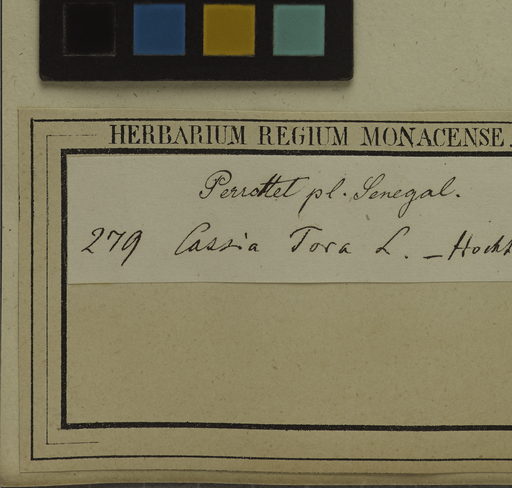 HERBARIUM REGIUM MONACENSE.
Perrottet pl. Senegal.
279 Cassia Tora L. _ Hochst